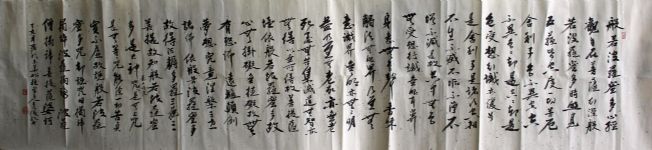 般若波羅蜜多心經
觀自在菩薩行深般
若波羅蜜多時照見
五蘊皆空度一切苦厄
舍利子色不異空空
不異色色即是空空即是
色受想行識亦復如
是舍利子是諸法空相
不生不滅不垢不淨不
增不減是故空中無色
無受想行識無眼耳鼻舌
身意無色聲香味
觸法無眼界乃至無
意識界無無明亦無無明
盡乃至無老死亦無老
死盡無苦集滅道無智亦
無得以無所得故菩提薩
埵依般若波羅蜜多故
心無掛礙無掛礙故無
有恐怖遠離顛倒
夢想究竟涅槃三世
諸佛依般若波羅蜜多
故得阿耨多羅三藐三
菩提故知般若波羅蜜
多是大神咒是大明咒
是無上咒是無等等咒能除一切苦真
實不虛故說般若波羅
蜜多咒即說咒曰揭諦
揭諦波羅揭諦波羅
僧揭諦菩提薩婆訶